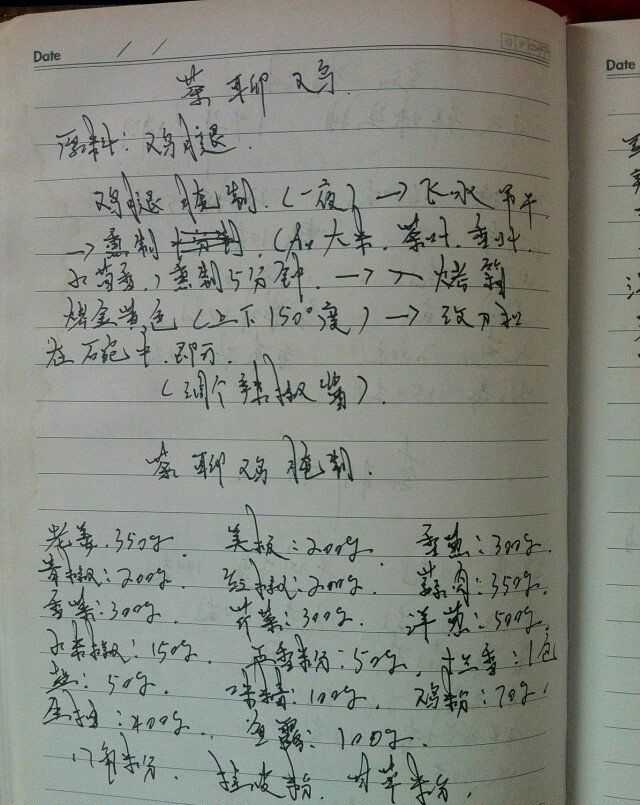 Date / /
茶聊鸡
原料: 鸡腿.
鸡腿腌制. (一夜) → 飞水 吊干
→ 熏制 (加大米. 茶叶. 香叶.
小茴香.) 熏制5分钟. → 入烤箱
烤金黄色 (上下150°度) → 改刀和
在石碗中. 即可.
(调个辣椒酱).
茶聊鸡腌制.
老姜. 350g. 美椒: 200g. 香葱: 300g.
青椒: 200g. 红椒: 200g. 蒜肉: 350g.
香菜: 300g. 芹菜: 300g. 洋葱: 500g.
小米椒: 150g. 五香粉: 50g. 十三香: 1包
盐: 50g. 味精: 100g. 鸡粉: 70g.
400g. 鱼露: 100g.
沙姜粉.
Date